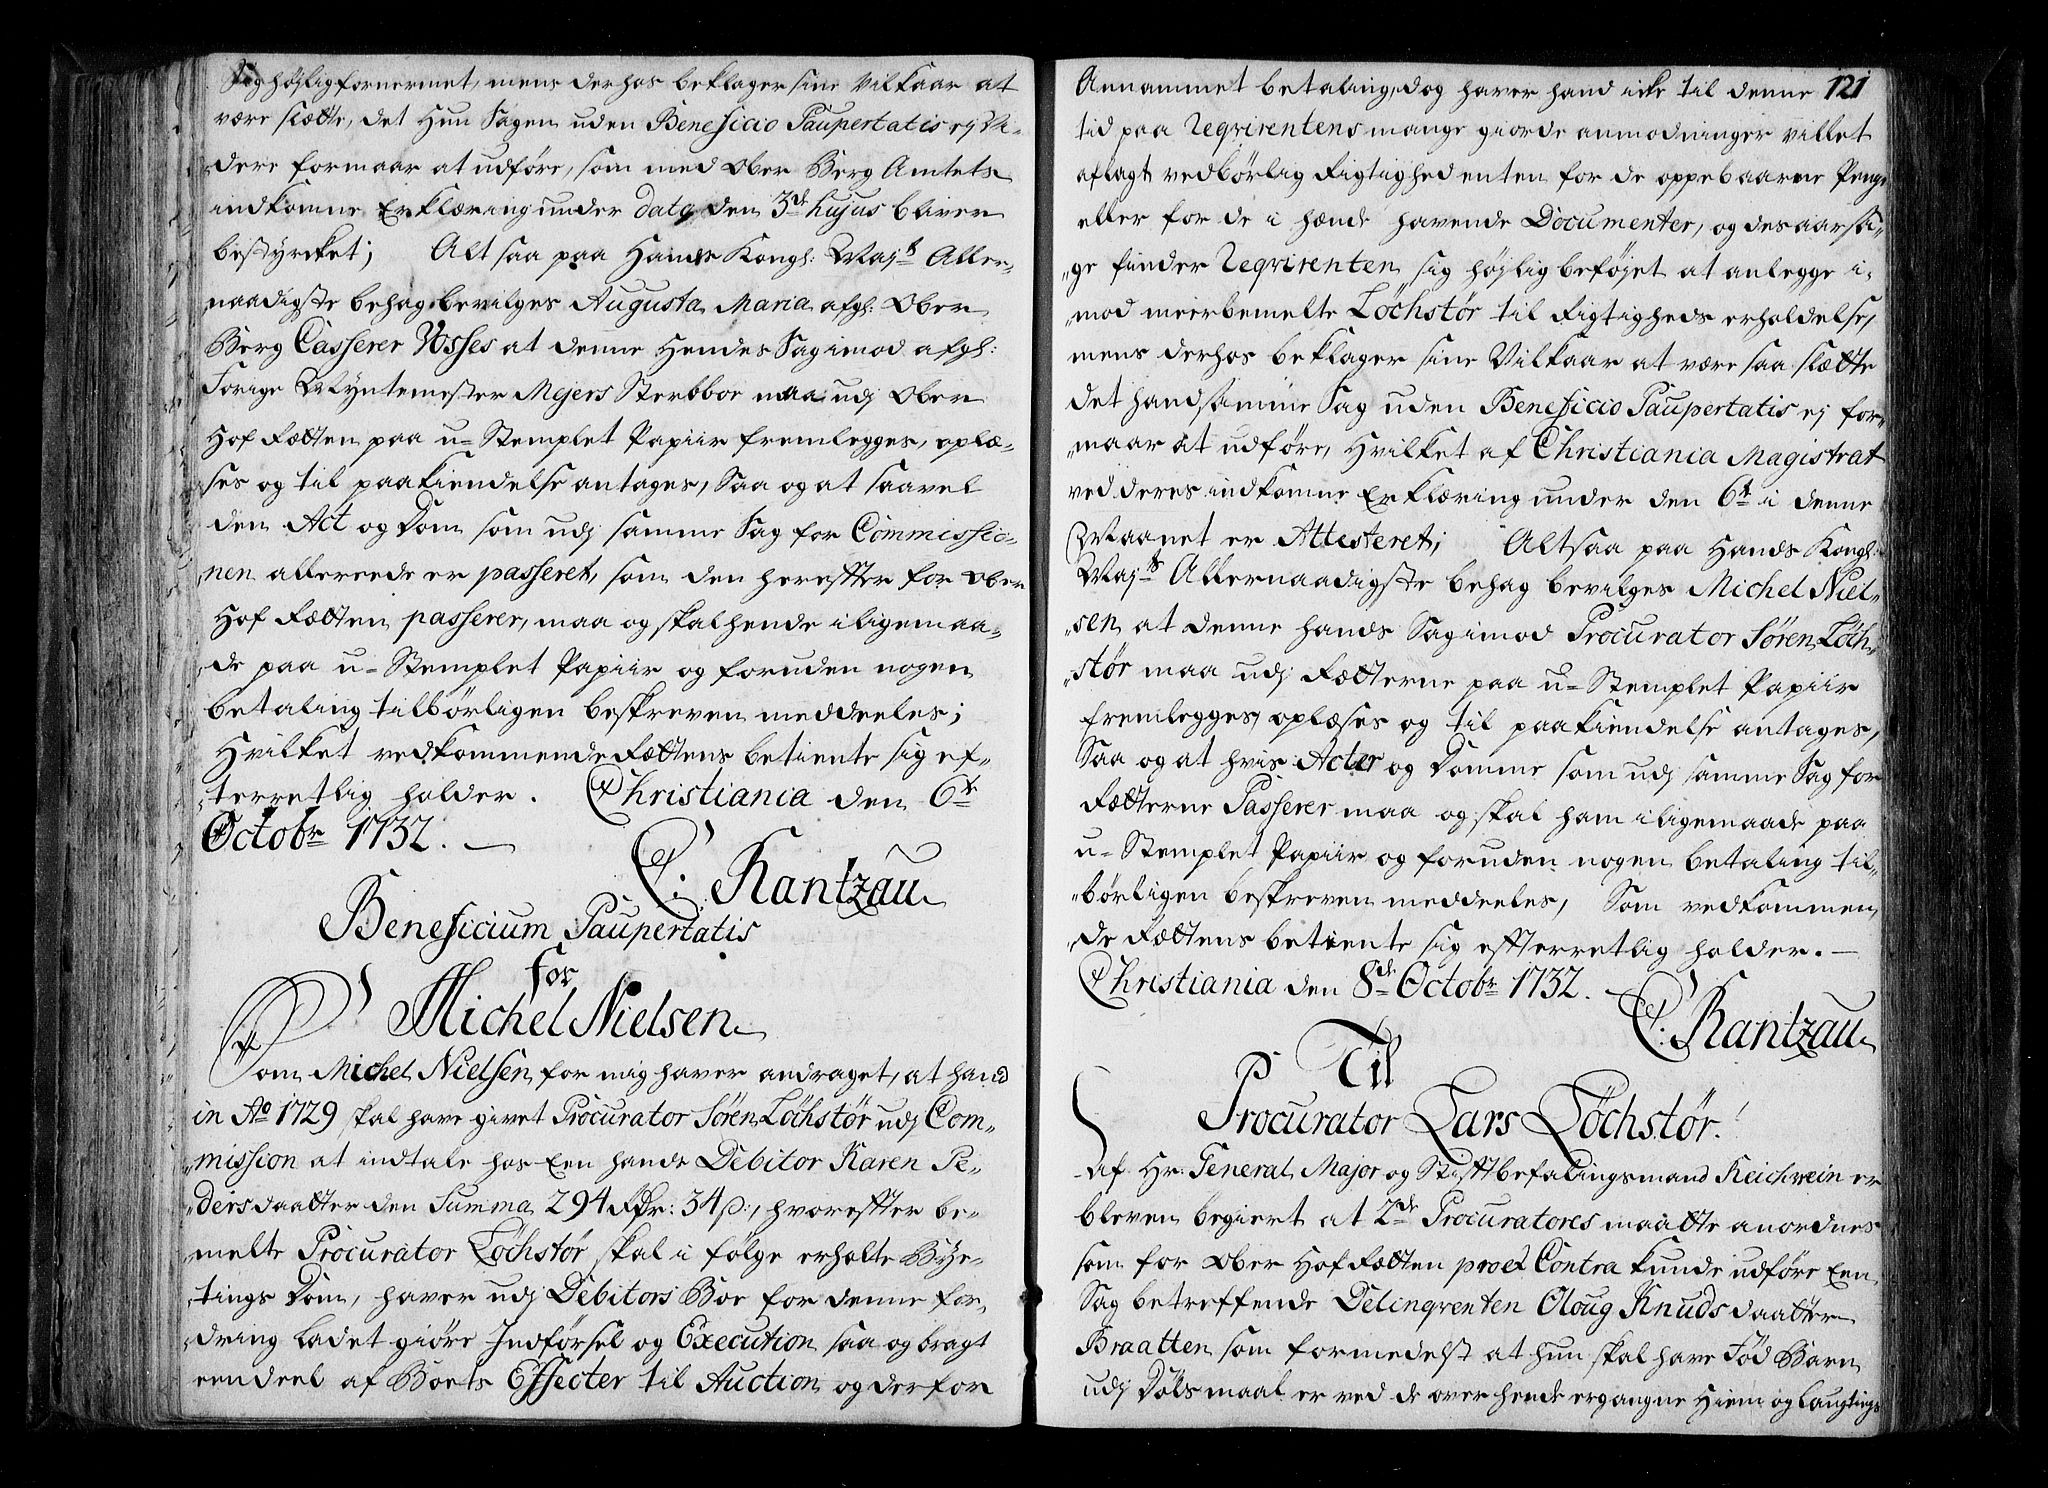 Sig højlig fornermet, mens derhos beklager sine Vilkaar at
være slætte, det Hun Sagen uden Beneficio Paupertatis ej vi-
dere formaar at udføre, som med Ober Berg Amtets
indkomne Erklæring under dato den 3de hujus bliver
bestyrcket; Alt saa paa Hands Kongl: Majts Aller-
naadigste behag bevilges Augusta Maria afgl: Ober
Berg Casserer Vosses at denne Hendes Sag imod afgl:
Forige Myntemester Mejers Sterbboe maa udj Ober
Hof Rætten paa u-Stemplet Papiir fremlegges, oplæ-
ses og til paakiendelse antages, Saa og at saavel
den Act og Dom som udj samme Sag for Commissio-
nen allereede er passeret, som den herefter for Ober
Hof Rætten passerer, maa og skal hende iligemaa-
de paa u-Stemplet Papiir og foruden nogen
betaling tilbørligen beskreven meddeeles;
Hvilket vedkommende Rættens betiente sig ef-
terretlig holder. Christiania den 6te
Octobr 1732.
C: Rantzau
Beneficium Paupertatis
for
Michel Nielsen
Som Michel Nielsen for mig haver andraget, at hand
in Ao 1729 skal have givet Procurator Søren Løchstør udj Com-
mission at indtale hos Een hands Debitor Karen Pe-
dersdaatter den Summa 294 Rdr: 34 s:, hvorefter be-
melte Procurator Løchstør skal i følge erholte Bÿe-
tings Dom, haver udj Debitors Boe for denne for-
dring ladet giøre Indførsel og Execution saa og bragt
eendeel af Boets Effecter til Auction og derfor
Annammet betaling, dog haver hand icke til denne 121
tid paa Reqvirentens mange giorde anmodninger villet
aflagt vedbørlig Rigtighed enten for de oppebaarne Penge
eller for de i hænde havende Documenter, og desaarsa-
ge finder Reqvirenten sig højlig beføjet at anlegge i-
mod meerbemelte Løchstør til Rigtigheds erholdelse,
mens derhos beklager sine Vilkaar at være saa slætte
det hand samme Sag uden Beneficio Paupertatis ej for-
maar at udføre, Hvilket af Christiania Magistrat
ved deres indkomne Erklæring under den 6te i denne
Maanet er Attesteret; Altsaa paa Hands Kongl:
Majts Allernaadigste behag bevilges Michel Niel-
sen at denne hands Sag imod Procurator Søren Løch-
stør maa udj Rætterne paa u-Stemplet Papiir
fremlegges, oplæses og til paakiendelse antages,
Saa og at hvis Acter og Domme som udj samme Sag for
Rætterne Passerer maa og skal ham iligemaade paa
u-Stemplet Papiir og foruden nogen betaling til-
børligen beskreven meddeeles, Som vedkommen-
de Rættens betiente sig efterretlig holder.
Christiania den 8de Octobr 1732.
C: Rantzau
Til
Procurator Lars Løchstør.
Af Hr: General Major og Stiftbefalingsmand Reichwein er
bleven begiert at 2de Procuratores maatte anordnes
som for Ober Hof Rætten pro et Contra kunde udføre Een
Sag betreffende Delinqventen Oloug Knudsdaatter
Braatten som formedelst at hun skal have Fød Barn
udj Dølsmaal er ved de over hende ergangne Hiem og Laugtings